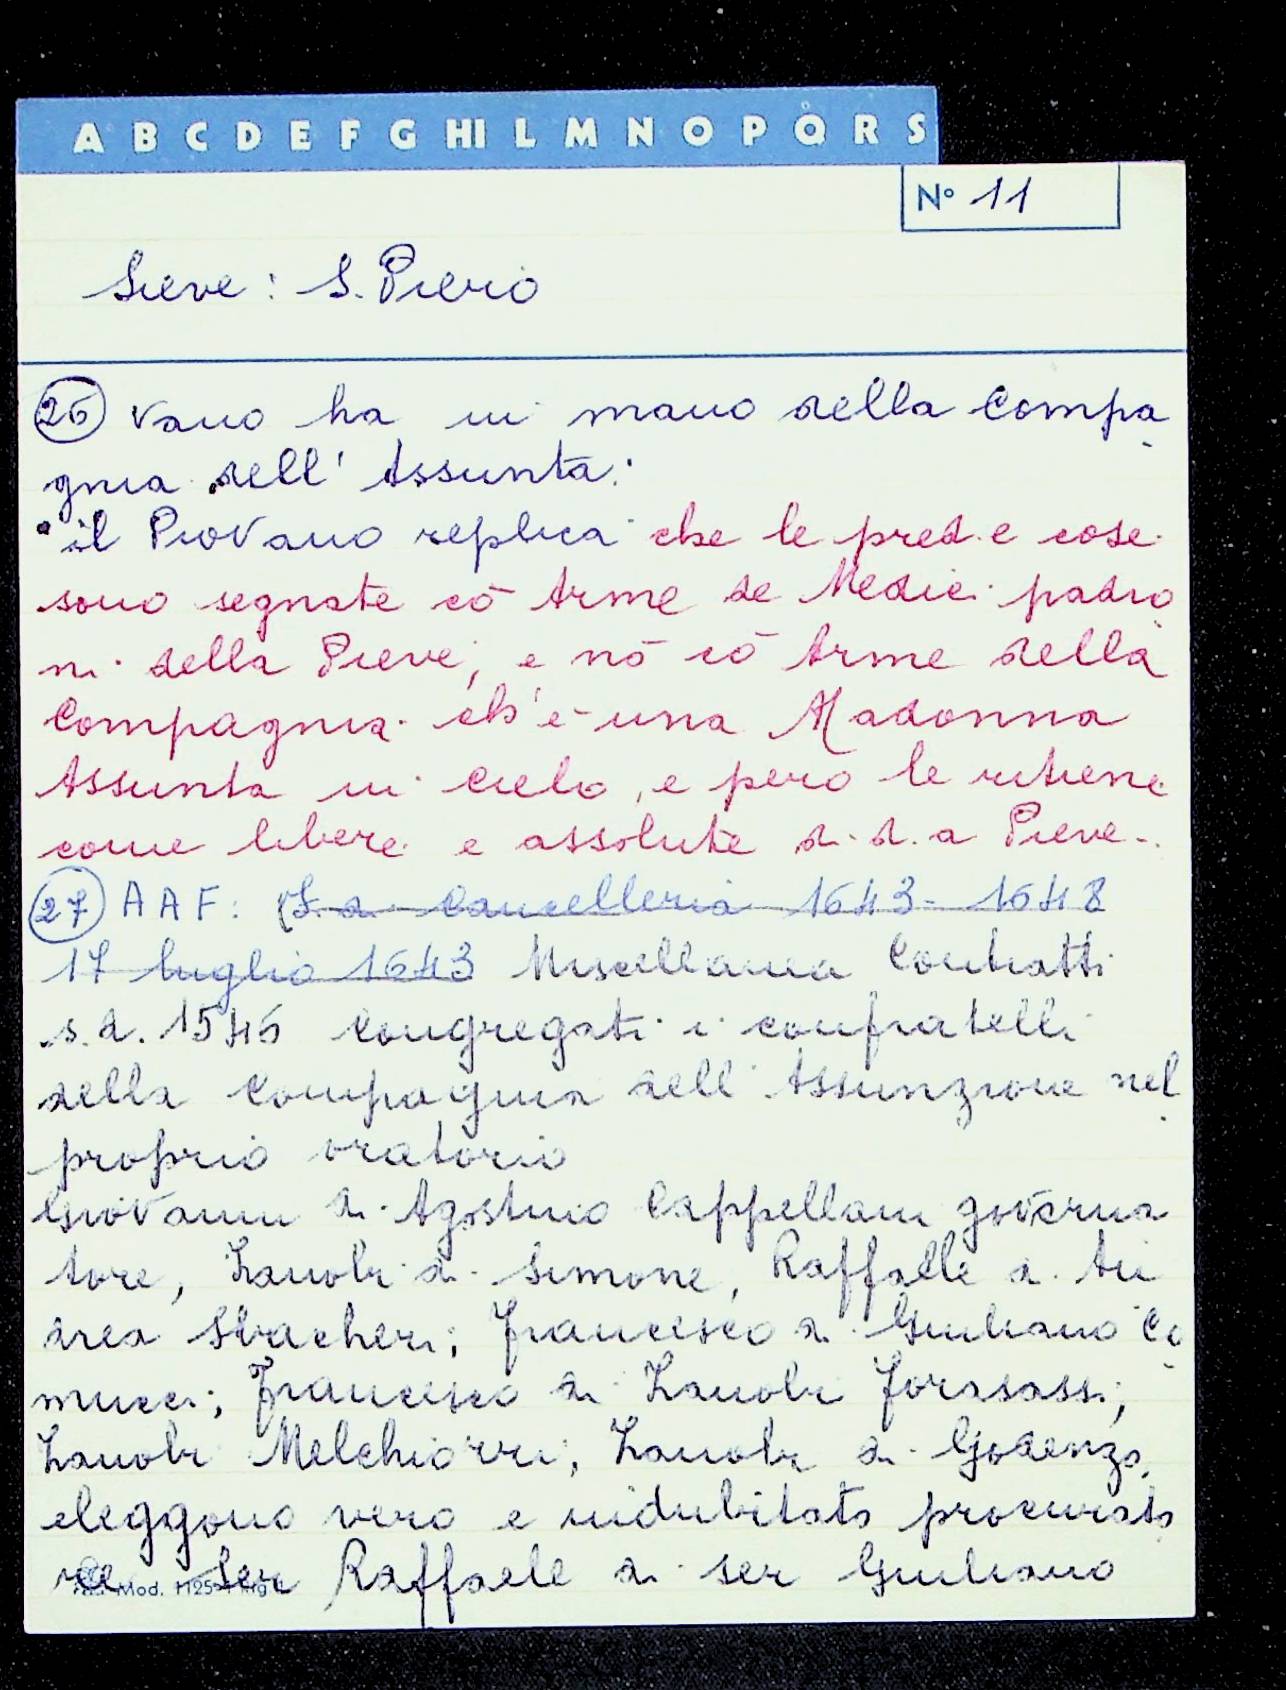 A B C D E F G HI L M N O P Q R S
N° 11
Sieve: S. Piero
26 vano ha in mano della Compa
gnia dell' Assunta:
il Piovano replica che le pred.e cose
sono segnate cō Arme de Medici padro
ni della Pieve, e nō cō Arme della
Compagnia ch'è una Madonna
Assunta in Cielo, e però le ritiene
come libere e assolute di d.a Pieve.
27 AAF: Cancelleria 1643-1648
17 luglio 1643 Miscellanea Contratti
s.d. 1546 Congregati i confratelli
della Compagnia dell'Assunzione nel
proprio oratorio
Giovanni di Agostino Cappellani governa
tore, Zanobi di Simone, Raffaelle di An
drea Sbacheri; Francesco di Giuliano Co
mucci; Francesco di Zanobi Forasassi;
Zanobi Melchiorri; Zanobi di Godenzo,
eleggono vero e indubitato procurato
re Ser Raffaele di ser Giuliano
Mod.